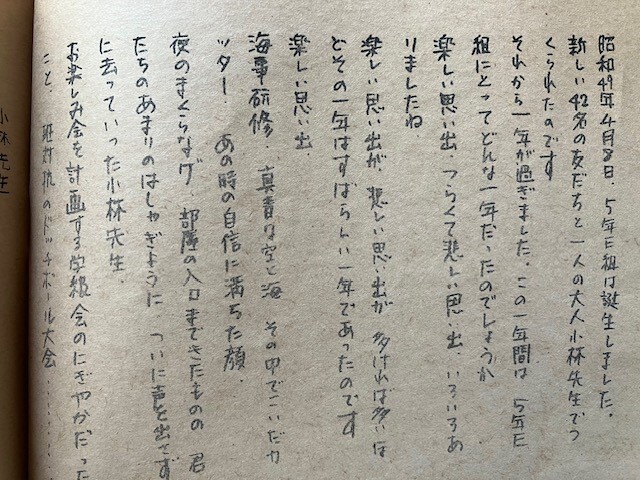 昭和49年4月8日、5年E組は誕生しました。
新しい42名の友だちと一人の大人小林先生でつ
くられたのです
それから一年が過ぎました。この一年間は 5年E
組にとってどんな一年だったのでしょうか
楽しい思い出、つらくて悲しい思い出、いろいろあ
りましたね
楽しい思い出が、悲しい思い出が 多ければ多いほ
どその一年はすばらしい一年であったのです
楽しい思い出
海事研修. 真青な空と海 その中でこいだカ
ッター. あの時の自信に満ちた顔.
夜のまくらなげ. 部屋の入口まできたものの 君
たちのあまりのはしゃぎように ついに声を出さず
に去っていった小林先生.
お楽しみ会を計画する学級会のにぎやかだった
こと. 班対抗のドッチボール大会..........
小林先生